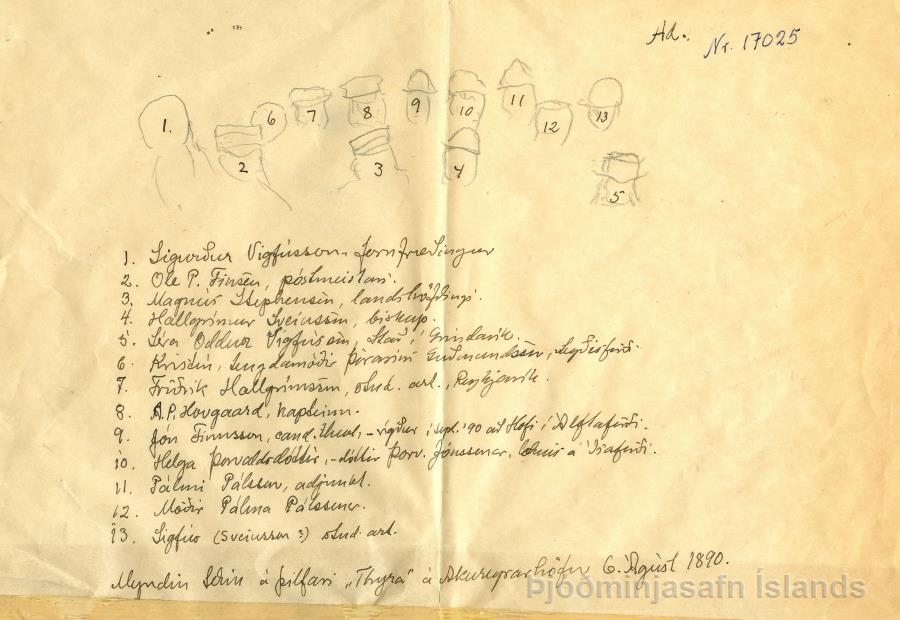 Ad.
Nr. 17025
1. 6 7 8 9 10 11 12 13
2 3 4 5
1. Sigurður Vigfússon, fornfræðingur
2. Ole P. Finsen, póstmeistari.
3. Magnús Stephensen, landshöfðingi.
4. Hallgrímur Sveinsson, biskup.
5. Séra Oddur Vígfússon, Stað í Grindavík.
6. Kristín, tengdamóðir Þórarins Guðmundssen, Seyðisfirði.
7. Friðrik Hallgrímsson, stud. art., Reykjavík.
8. A.P. Hovgaard, kapteinn.
9. Jón Finnsson, cand. theol, - vígður í sept. '90 að Hofi í Álftafirði.
10. Helga Þorvaldsdóttir, - dóttir Þorv. Jónssonar, læknis á Ísafirði.
11. Pálmi Pálsson, adjunkt.
12. Móðir Pálma Pálssonar.
13. Sigfús (Sveinsson?) stud. art.
Myndin tekin á þilfari "Thyra" á Akureyrarhöfn 6. Ágúst 1890.
Þjóðminjasafn Íslands